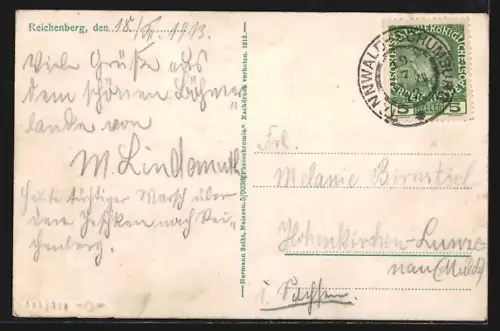 Reichenberg, den 18. 1913.
Viele Grüße aus
dem schönen Böhmer
lande von
M. Lindemuth
Heute tüchtiger Marsch über
den Jeschken nach Rei-
chenberg.
Hermann Seibt, Meissen. 5/9036 (Photochromie). Nachdruck verboten. 1912.
TANNWALD-SCHUMBURG
5 HELLER 5
Frl.
Melanie Birnstiel
Hohenkirchen-Lunze-
nau (Mulde)
i. Sachsen.